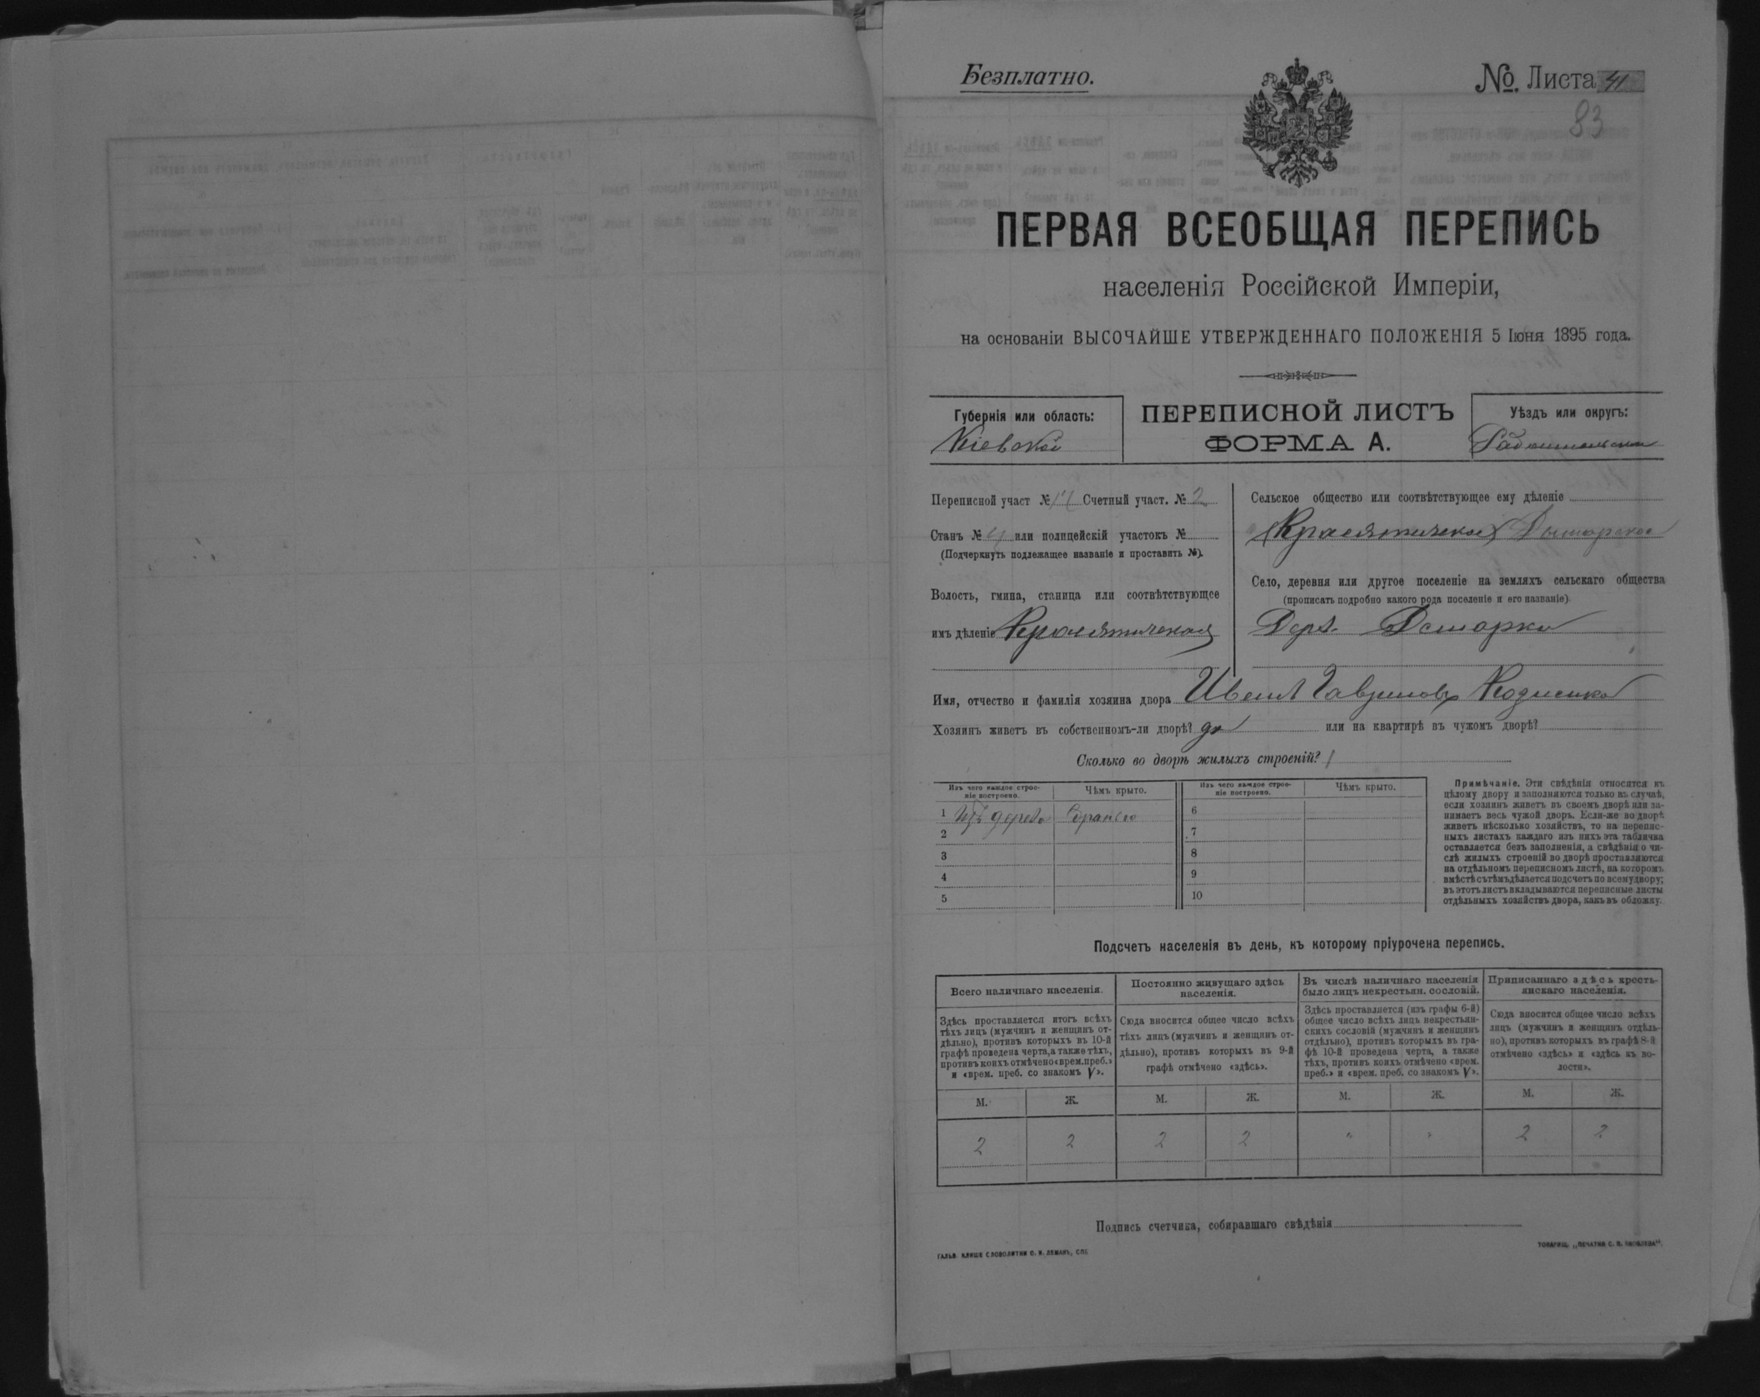 Безплатно.
№ Листа 41
83
ПЕРВАЯ ВСЕОБЩАЯ ПЕРЕПИСЬ
населенія Россійской Имперіи,
на основаніи ВЫСОЧАЙШЕ УТВЕРЖДЕННАГО ПОЛОЖЕНІЯ 5 Іюня 1895 года.
Губернія или область:
Кіевской
ПЕРЕПИСНОЙ ЛИСТЪ
ФОРМА А.
Уѣздъ или округъ:
Радомысльскій
Переписной участ № Счетный участ. № 2
Станъ № 4 или полицейскій участокъ №
(Подчеркнуть подлежащее названіе и проставить №).
Волость, гмина, станица или соотвѣтствующее
имъ дѣленіе Кросятичская
Сельское общество или соотвѣтствующее ему дѣленіе
Село, деревня или другое поселеніе на земляхъ сельскаго общества
(прописать подробно какого рода поселеніе и его названіе)
Дер.
Имя, отчество и фамилія хозяина двора Иванъ Гавриловъ
Хозяинъ живетъ въ собственномъ-ли дворѣ? да или на квартирѣ въ чужомъ дворѣ?
Сколько во дворѣ жилыхъ строеній? 1
Изъ чего каждое строе-
ніе построено.
Чѣмъ крыто.
1 Изъ дерева
2
3
4
5
Изъ чего каждое строе-
ніе построено.
Чѣмъ крыто.
6
7
8
9
10
Примѣчаніе. Эти свѣдѣнія относятся къ
цѣлому двору и заполняются только въ случаѣ,
если хозяинъ живетъ въ своемъ дворѣ или за-
нимаетъ весь чужой дворъ. Если-же во дворѣ
живетъ нѣсколько хозяйствъ, то на перепис-
ныхъ листахъ каждаго изъ нихъ эта табличка
оставляется безъ заполненія, а свѣдѣнія о чи-
слѣ жилыхъ строеній во дворѣ проставляются
на отдѣльномъ переписномъ листѣ, на которомъ
вмѣстѣ съ тѣмъ дѣлается подсчетъ по всему двору;
въ этотъ листъ вкладываются переписные листы
отдѣльныхъ хозяйствъ двора, какъ въ обложку.
Подсчетъ населенія въ день, къ которому пріурочена перепись.
Всего наличнаго населенія.
Здѣсь проставляется итогъ всѣхъ
тѣхъ лицъ (мужчинъ и женщинъ от-
дѣльно), противъ которыхъ въ 10-й
графѣ проведена черта, а также тѣхъ,
противъ коихъ отмѣчено «врем. преб.»
и «врем. преб. со знакомъ V».
М. Ж.
2 2
Постоянно живущаго здѣсь
населенія.
Сюда вносится общее число всѣхъ
тѣхъ лицъ (мужчинъ и женщинъ от-
дѣльно), противъ которыхъ въ 9-й
графѣ отмѣчено «здѣсь».
М. Ж.
2 2
Въ числѣ наличнаго населенія
было лицъ некрестьян. сословій.
Здѣсь проставляется (изъ графы 6-й)
общее число всѣхъ лицъ некрестьян-
скихъ сословій (мужчинъ и женщинъ
отдѣльно), противъ которыхъ въ гра-
фѣ 10-й проведена черта, а также
тѣхъ, противъ коихъ отмѣчено «врем.
преб.» и «врем. преб. со знакомъ V».
М. Ж.
" "
Приписаннаго здѣсь кресть-
янскаго населенія.
Сюда вносится общее число всѣхъ
лицъ (мужчинъ и женщинъ отдѣль-
но), противъ которыхъ въ графѣ 8-й
отмѣчено «здѣсь» и «здѣсь въ во-
лости».
М. Ж.
2 2
Подпись счетчика, собиравшаго свѣдѣнія
ГАЛЬВ. КЛИШЕ СЛОВОЛИТНИ О. И. ЛЕМАНЪ, СПБ.
ТОВАРИЩ. „ПЕЧАТНЯ С. П. ЯКОВЛЕВА“.